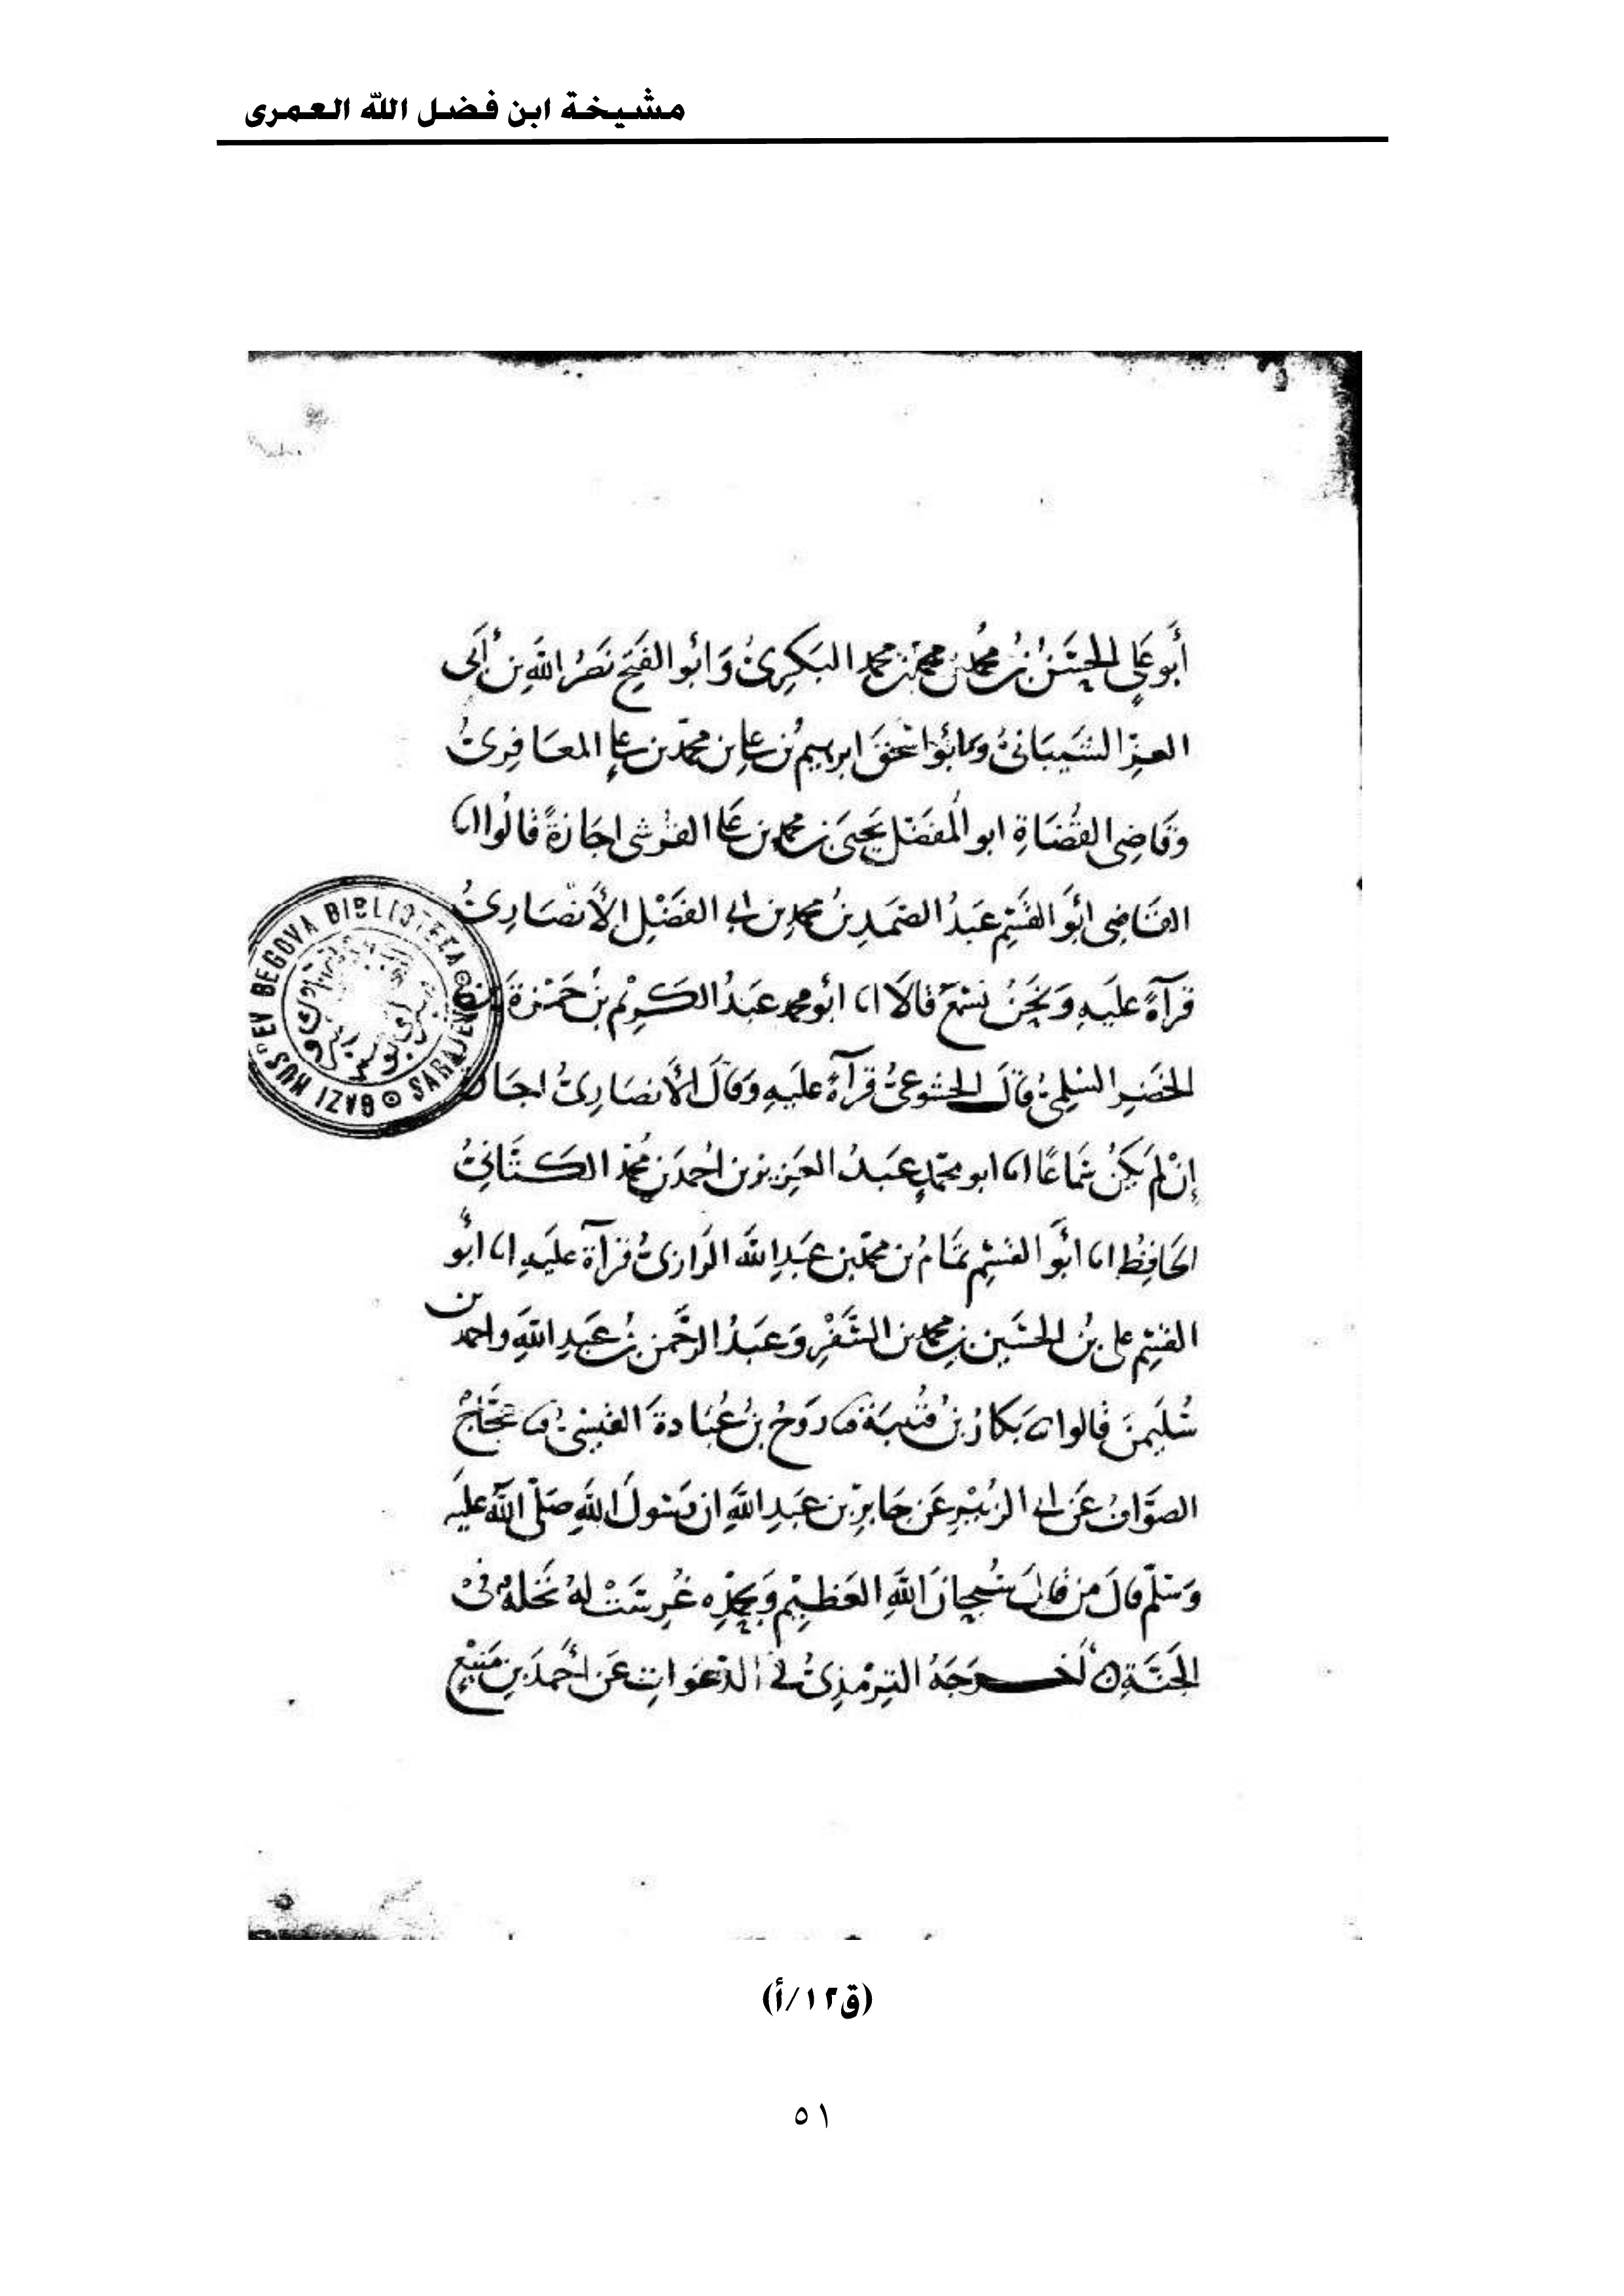 مشيخة ابن فضل الله العمرى
أَبو عَلي الحسَنُ بنُ محمد بن محمد بن محمد البَكرِيُّ وَابُو الفَتح نَصرُ الله بن أَبى
العِزّ الشيبَانىُّ وابُو اسحٰق ابرهيمُ بن على بن محمّد بن على المعَافِرىُّ
وَقَاضِى القُضَاةِ ابو المُفضّل يَحيىَ بن محمد بن عَلى القرشى اجَازةً قالُوا انا
القَاضِى ابُو القٰسِم عَبدُ الصَّمدِ بنُ محمدِ بن ابى الفَضْل الأنصَارِىُّ
قرآةً عليَهِ وَنَحنُ نسمَع قالَا انا ابُو محمد عَبدُ الكَرِيْم بنُ حَمْزةَ بن
الخَضِر السّلمِىُّ قالَ الخشُوعىُّ قرآةً عليَهِ وَقالَ الأنصَارِىُّ اجَازة
إنْ لم يَكُنْ سَمَاعًا انا ابو محمّدٍ عَبدُ العَزِيز بن احمدَ بن محمّد الكتَّانىُّ
الحَافِظُ انا أَبُو القٰسِم تمَّامُ بن محمّد بن عَبدِ الله الرَّازىُّ قرآةً عليَهِ انا ابُو
القٰسِم على بنُ الحسَين بن محمد بن السَّفْرِ وَعَبدُ الرَّحمن بنُ عَبدِ اللهِ واحمد بن
سُليمٰنَ قالوا نا بَكارُ بنُ قُتيبَة نا رَوحُ بنُ عُبَادةَ القَيسىُّ نا حَجَّاجُ
الصوَّافُ عَن ابى الزبَيْرِ عَن جَابِرِ بن عَبدِ اللهِ ان رَسُولَ اللهِ صَلّى اللهُ عليَه
وَسَلّم قالَ من قالَ سُبحانَ اللهِ العَظيْمِ وَبحمْدِه غُرِسَتْ لهُ نَخلةٌ فىْ
الجَنَّةِ ه أَخرَجَهُ التِرْمذِىُّ فى الدَّعَوَاتِ عَن أَحمدَ بنِ مَنِيْعٍ
GAZI HUSREV BEGOVA BIBLIOTEKA SARAJEVO
(ق١٢/أ)
٥١